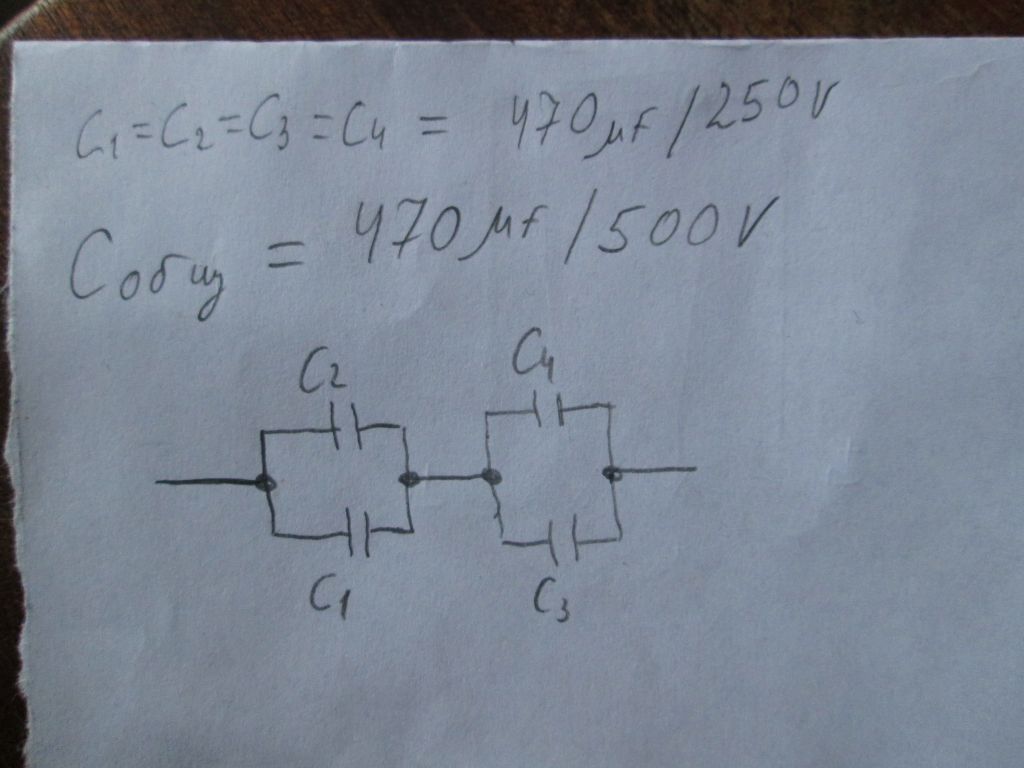 C1=C2=C3=C4 = 470μf/250V
Cобщ = 470μf/500V
C2 C4
C1 C3